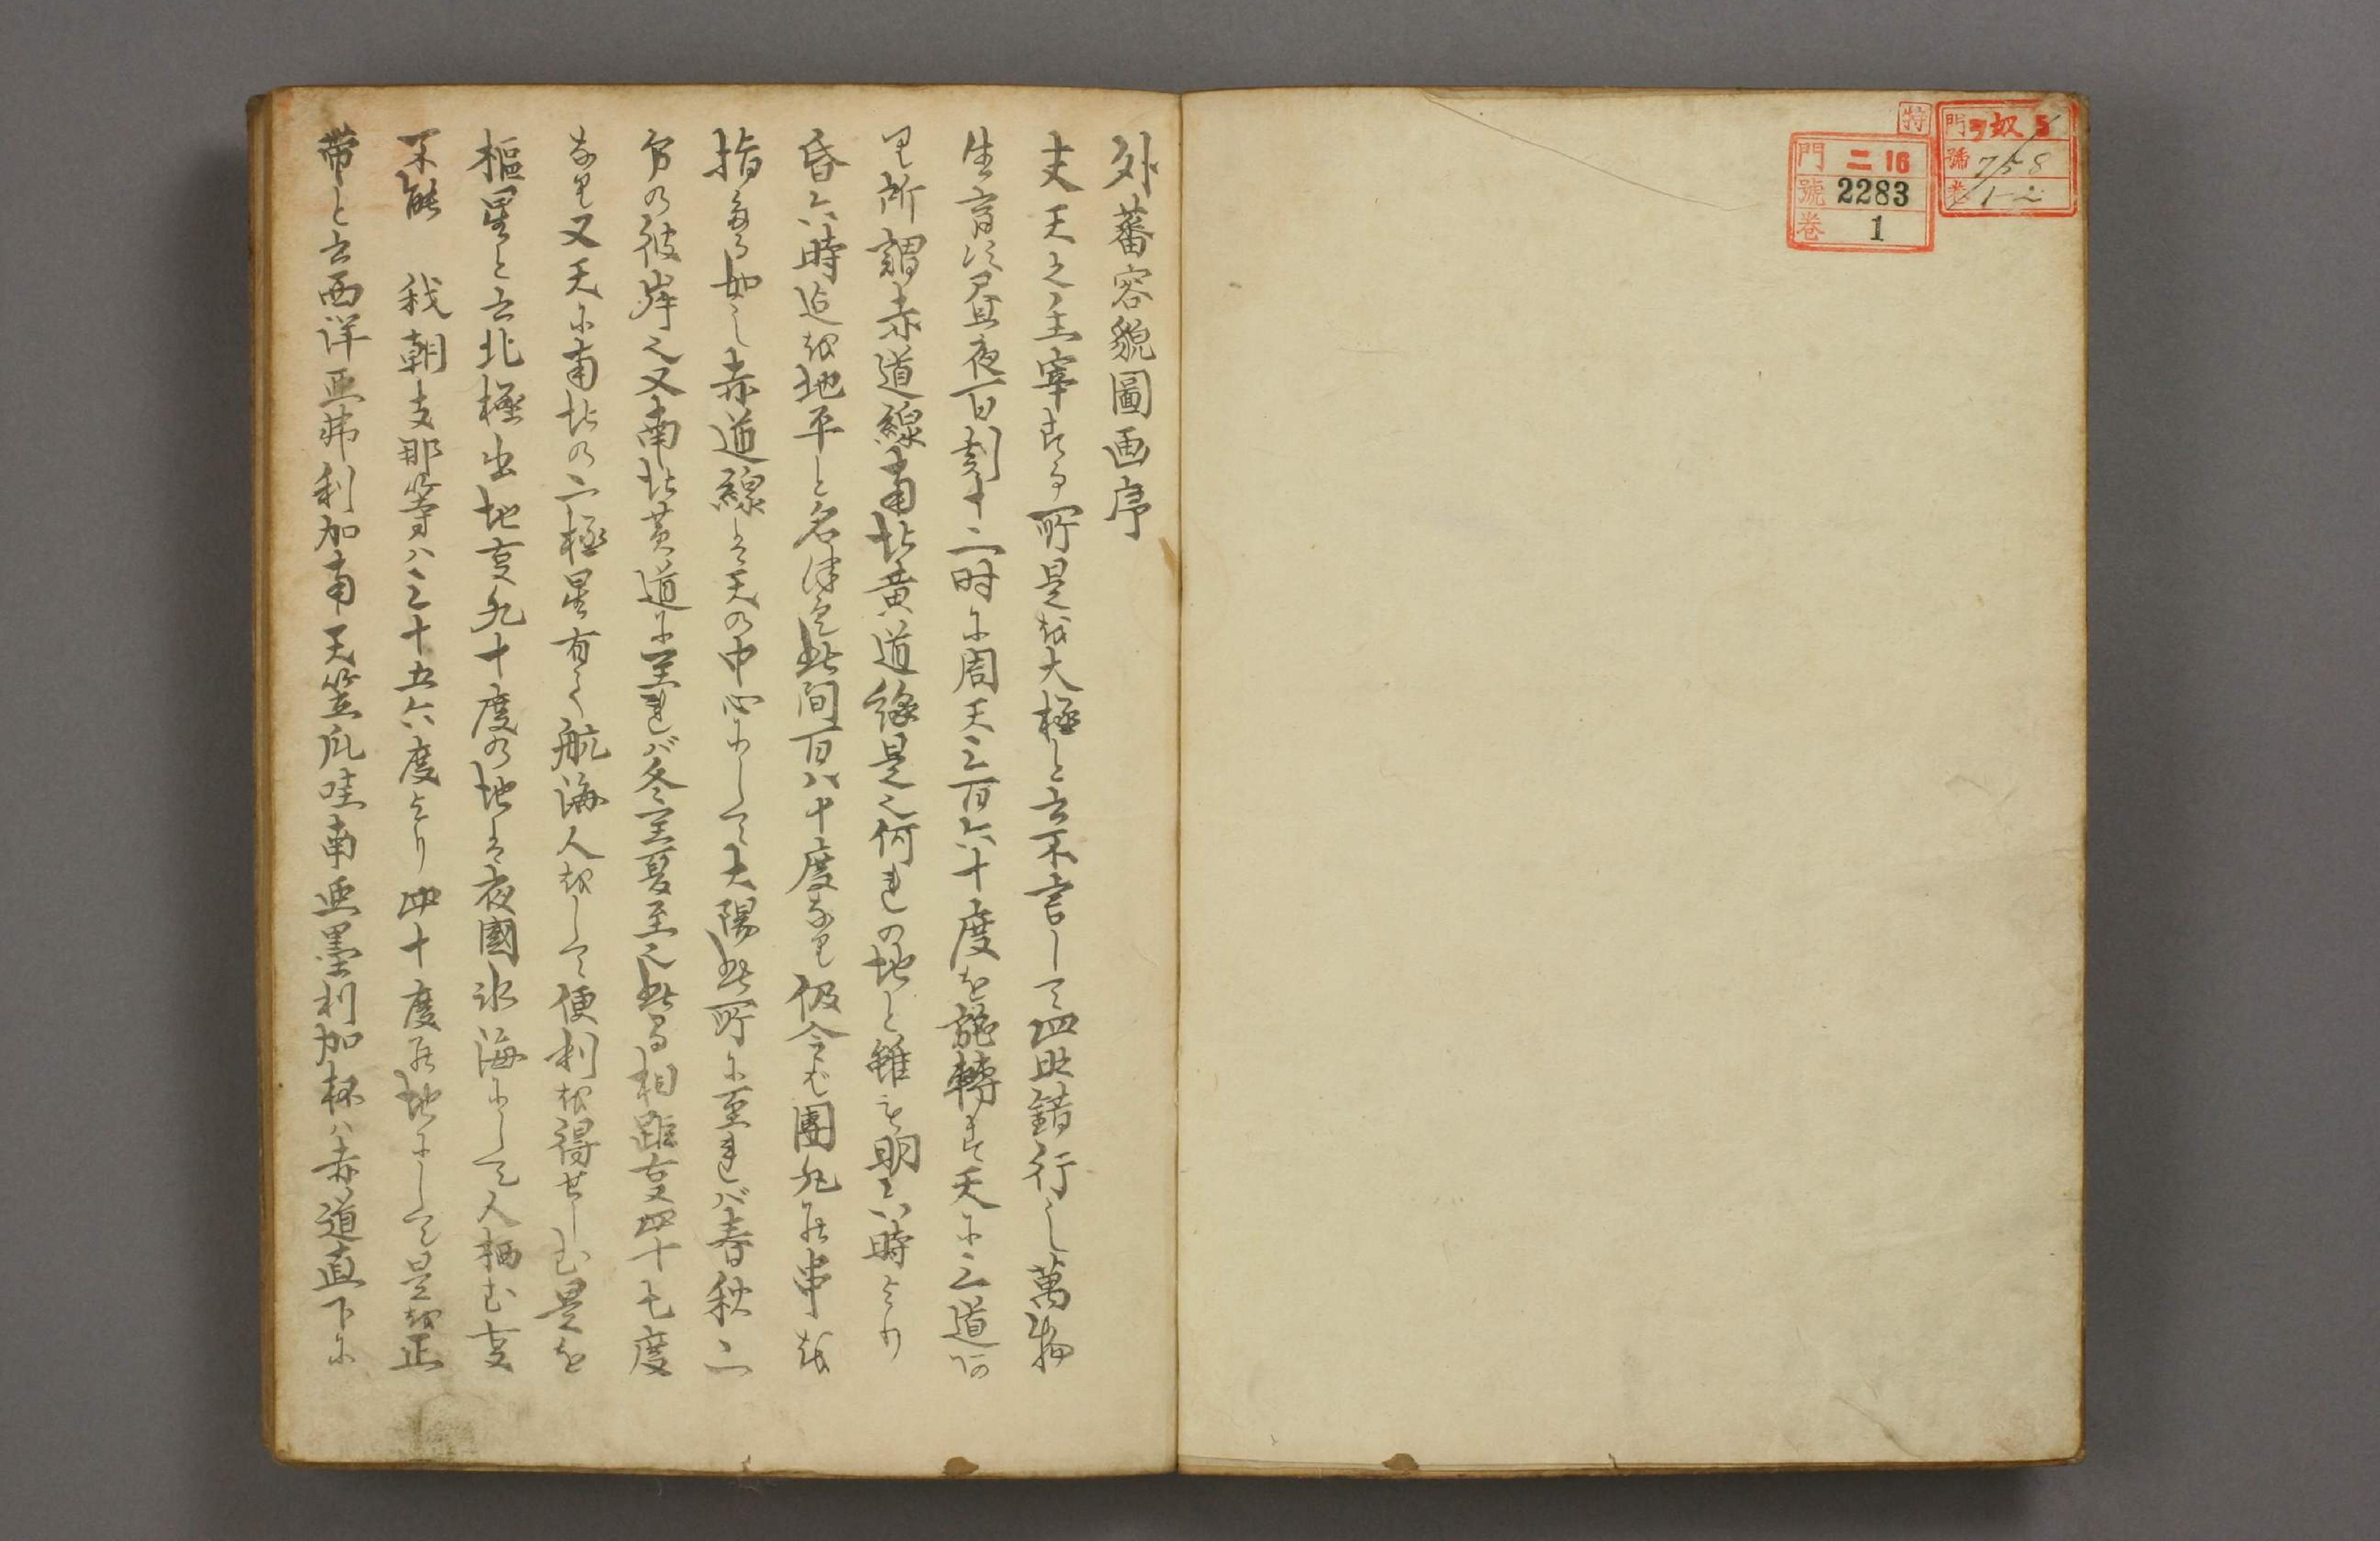 特
門 ヌ奴 5
號 758
巻 1-2
門 二 16
號 2283
巻 1
外蕃容貌圖画序
夫天之主宰する所是を大極と云不言して四時錯行し萬物
生育次昼夜百刻十二时に周天三百六十度を旋轉す天に三道あ
り所謂赤道線南北黄道線是也何れの地と雖も明六時より
昏六時迄を地平と名津く此間百八十度なり仮令ば團丸に串を
指たる如し赤道線は天の中心にして大陽此所に至れバ春秋二
分の彼岸也又南北黄道に至れバ冬至夏至也此る相距事四十七度
なり又天に南北の二極星有て航海人をして便利を得せしむ是を
樞星と云北極出地事九十度の地は夜國氷海にして人栖む事
不能 我朝支那等ハ三十五六度より四十度の地にして是を正
帯と云西洋亜弗利加南天竺爪哇南亜墨利加抔ハ赤道直下に